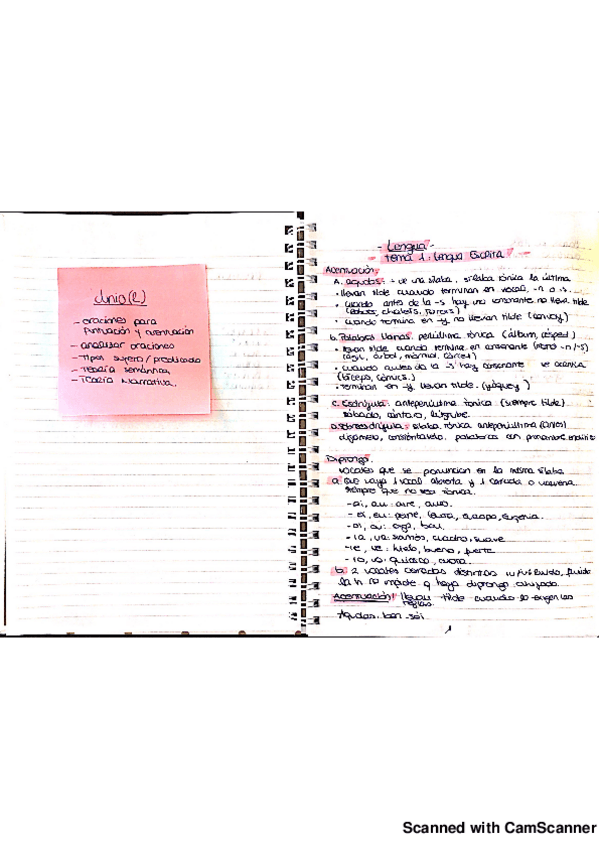 Junio(L)
- oraciones para
puntuación y acentuación
- analizar oraciones
- Tipos sujeto/predicado
- Teoría semántica.
- Teoría Narrativa.
- Lengua -
- Tema 1: Lengua Escrita
Acentuación
A. agudas: + de una sílaba, sílaba tónica la última
• llevan tilde cuando terminan en vocal, -n o -s.
• cuando antes de la -s hay una consonante no lleva tilde
• cuando termina en -y no llevan tilde (convoy)
b. Palabras llanas. penúltima tónica (álbum, césped)
• llevan tilde cuando termina en consonante (menos -n/-s)
(ágil, árbol, mármol, cárcel)
• cuando antes de la -s hay consonante
(bíceps, cómics.)
• terminan en -y. llevan tilde. (yóquey)
C. Esdrújula: antepenúltima tónica (siempre tilde)
sábado, cántaro,
D. Sobresdrújula: sílaba tónica antepenúltima (antes)
dígamelo, palabras con pronombre
Diptongo.
vocales que se pronuncian en la misma sílaba
a. que vaya 1 vocal abierta y 1 cerrada o viceversa.
siempre que no sea tónica.
- ai, au: aire,
- ei, eu: peine, Europa, Eugenia.
- oi, ou: bou.
- ia, ua: cuadro, suave
- ie, ue: hielo, bueno, fuerte
- io, uo:
b. 2 vocales cerradas distintas
la h no impide q haya diptongo ahijado.
Acentuación! llevan tilde cuando lo exigen las
reglas.
Agudas.
Scanned with CamScanner